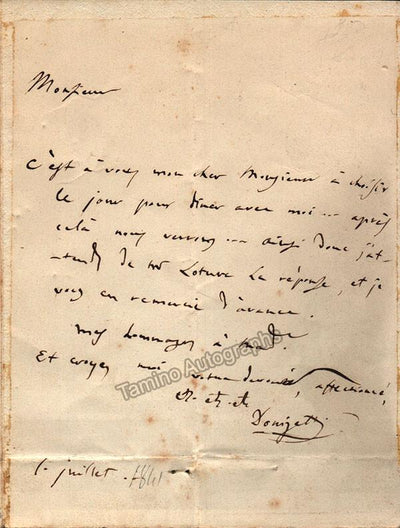 Monsieur
C'est à vous mon cher Monsieur à choisir
le jour pour diner avec moi ... après
celà nous verrons ... ainsi donc j'at-
-tends de la réponse, et je
vous en remercie d'avance.
mes hommages à Mde.
Et croyez moi votre devoué, affectionné,
et. et. et
Donizetti
Tamino Autographs
1. juillet. 1841